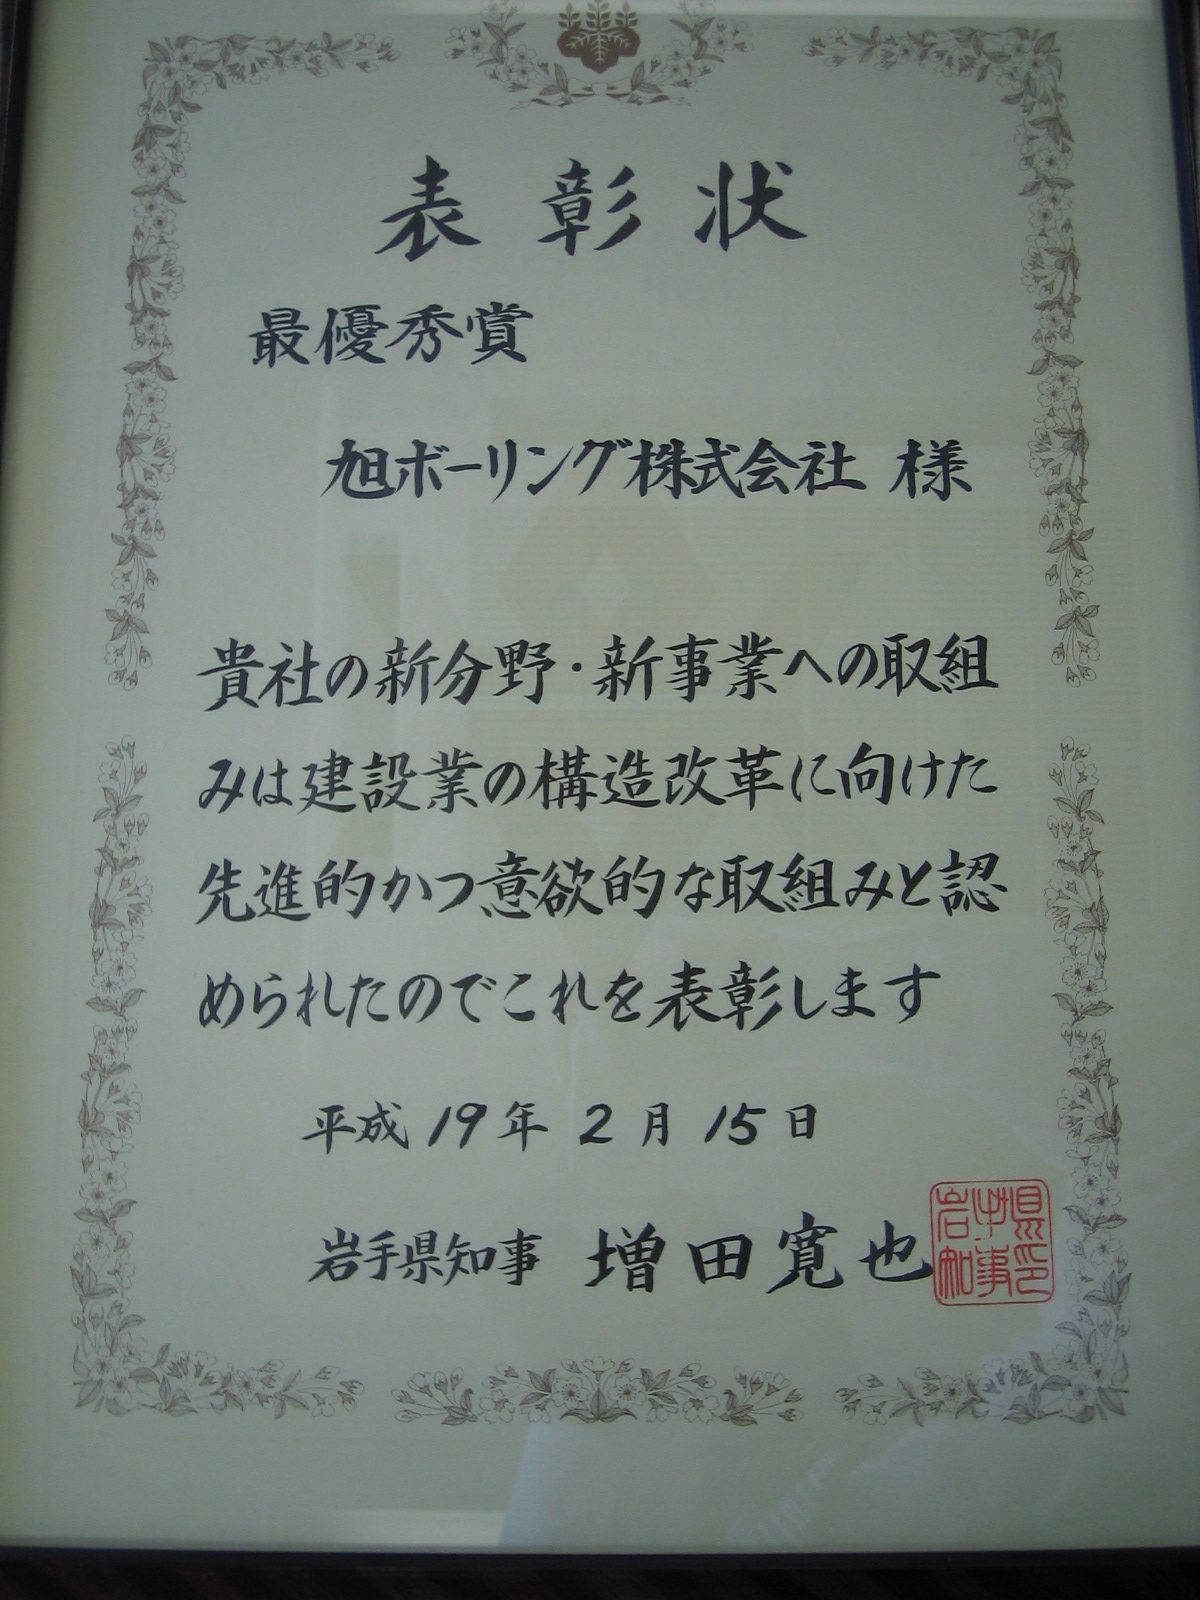 表彰状
最優秀賞
旭ボーリング株式会社 様
貴社の新分野・新事業への取組
みは建設業の構造改革に向けた
先進的かつ意欲的な取組みと認
められたのでこれを表彰します
平成 19 年 2 月 15 日
岩手県知事 増田寛也
岩手県知事印